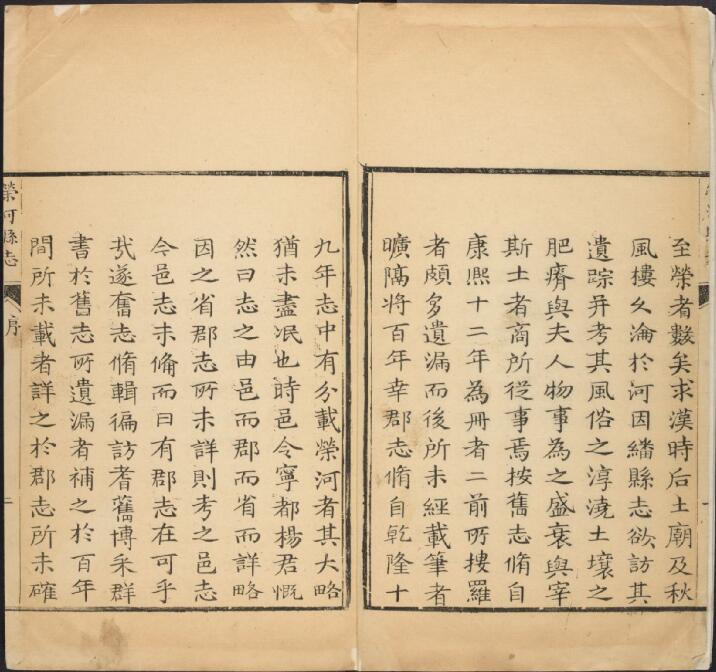 至榮者數矣求漢時后土廟及秋
風樓久淪於河因繙縣志欲訪其
遺踪并考其風俗之淳澆土壤之
肥瘠與夫人物事為之盛衰與宰
斯土者商所從事焉按舊志脩自
康熙十二年為冊者二前所摟羅
者頗多遺漏而後所未經載筆者
曠隔將百年幸郡志脩自乾隆十
九年志中有分載榮河者其大略
猶未盡泯也時邑令寧都楊君慨
然曰志之由邑而郡而省而詳略
因之省郡志所未詳則考之邑志
今邑志未脩而曰有郡志在可乎
㢤遂奮志脩輯徧訪耆舊博采群
書於舊志所遺漏者補之於百年
間所未載者詳之於郡志所未確
榮河縣志
序